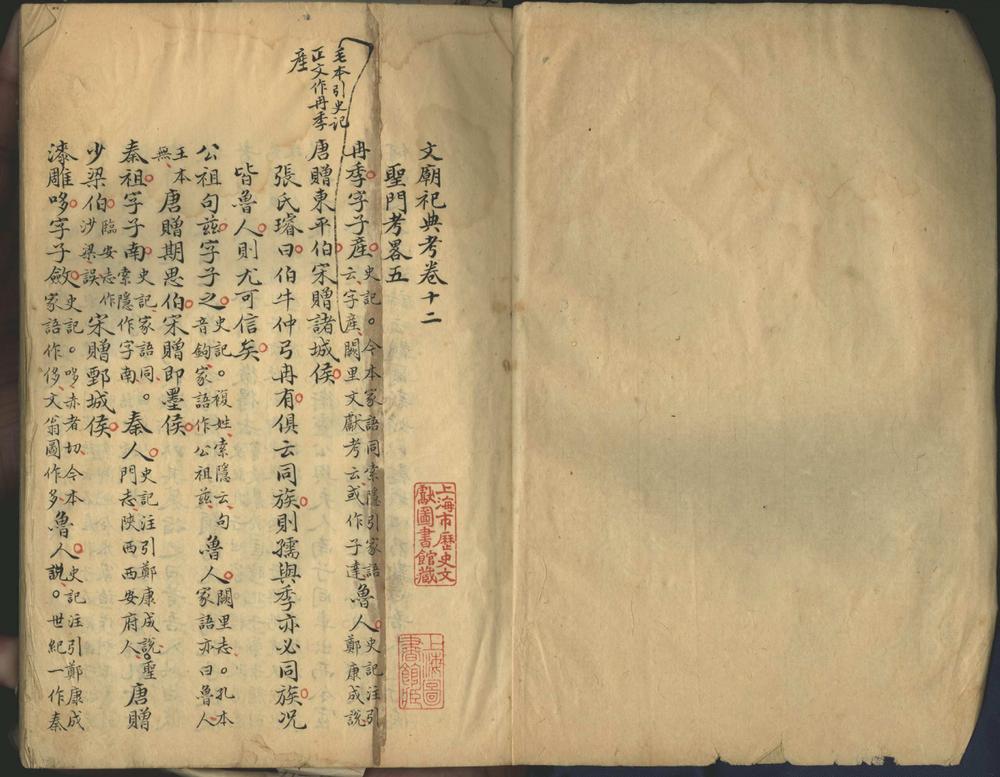 文廟祀典考卷十二
聖門考畧五
毛本引史記
正文作冉季
產
冉季字子產史記。今本家語同索隱引家語
云字產闕里文獻考云或作子達魯人史記注引
鄭康成說
唐贈東平伯宋贈諸城侯
張氏璿曰伯牛仲弓冉有俱云同族則孺與季亦必同族况
皆魯人則尤可信矣
公祖句茲字子之史記。複姓索隱云句
音鉤家語作公祖茲魯人闕里志。孔本
家語亦曰魯人
王本
無
唐贈期思伯宋贈即墨侯
秦祖字子南史記家語同。
索隱作字南秦人史記注引鄭康成說。聖
門志陝西西安府人唐贈
少梁伯臨安志作
沙梁誤宋贈鄄城侯
漆雕哆字子斂史記。哆赤者切今本
家語作侈文翁圖作多魯人史記注引鄭康成
說。世紀一作秦
上海市歷史文
獻圖書館藏
上海圖
書館藏